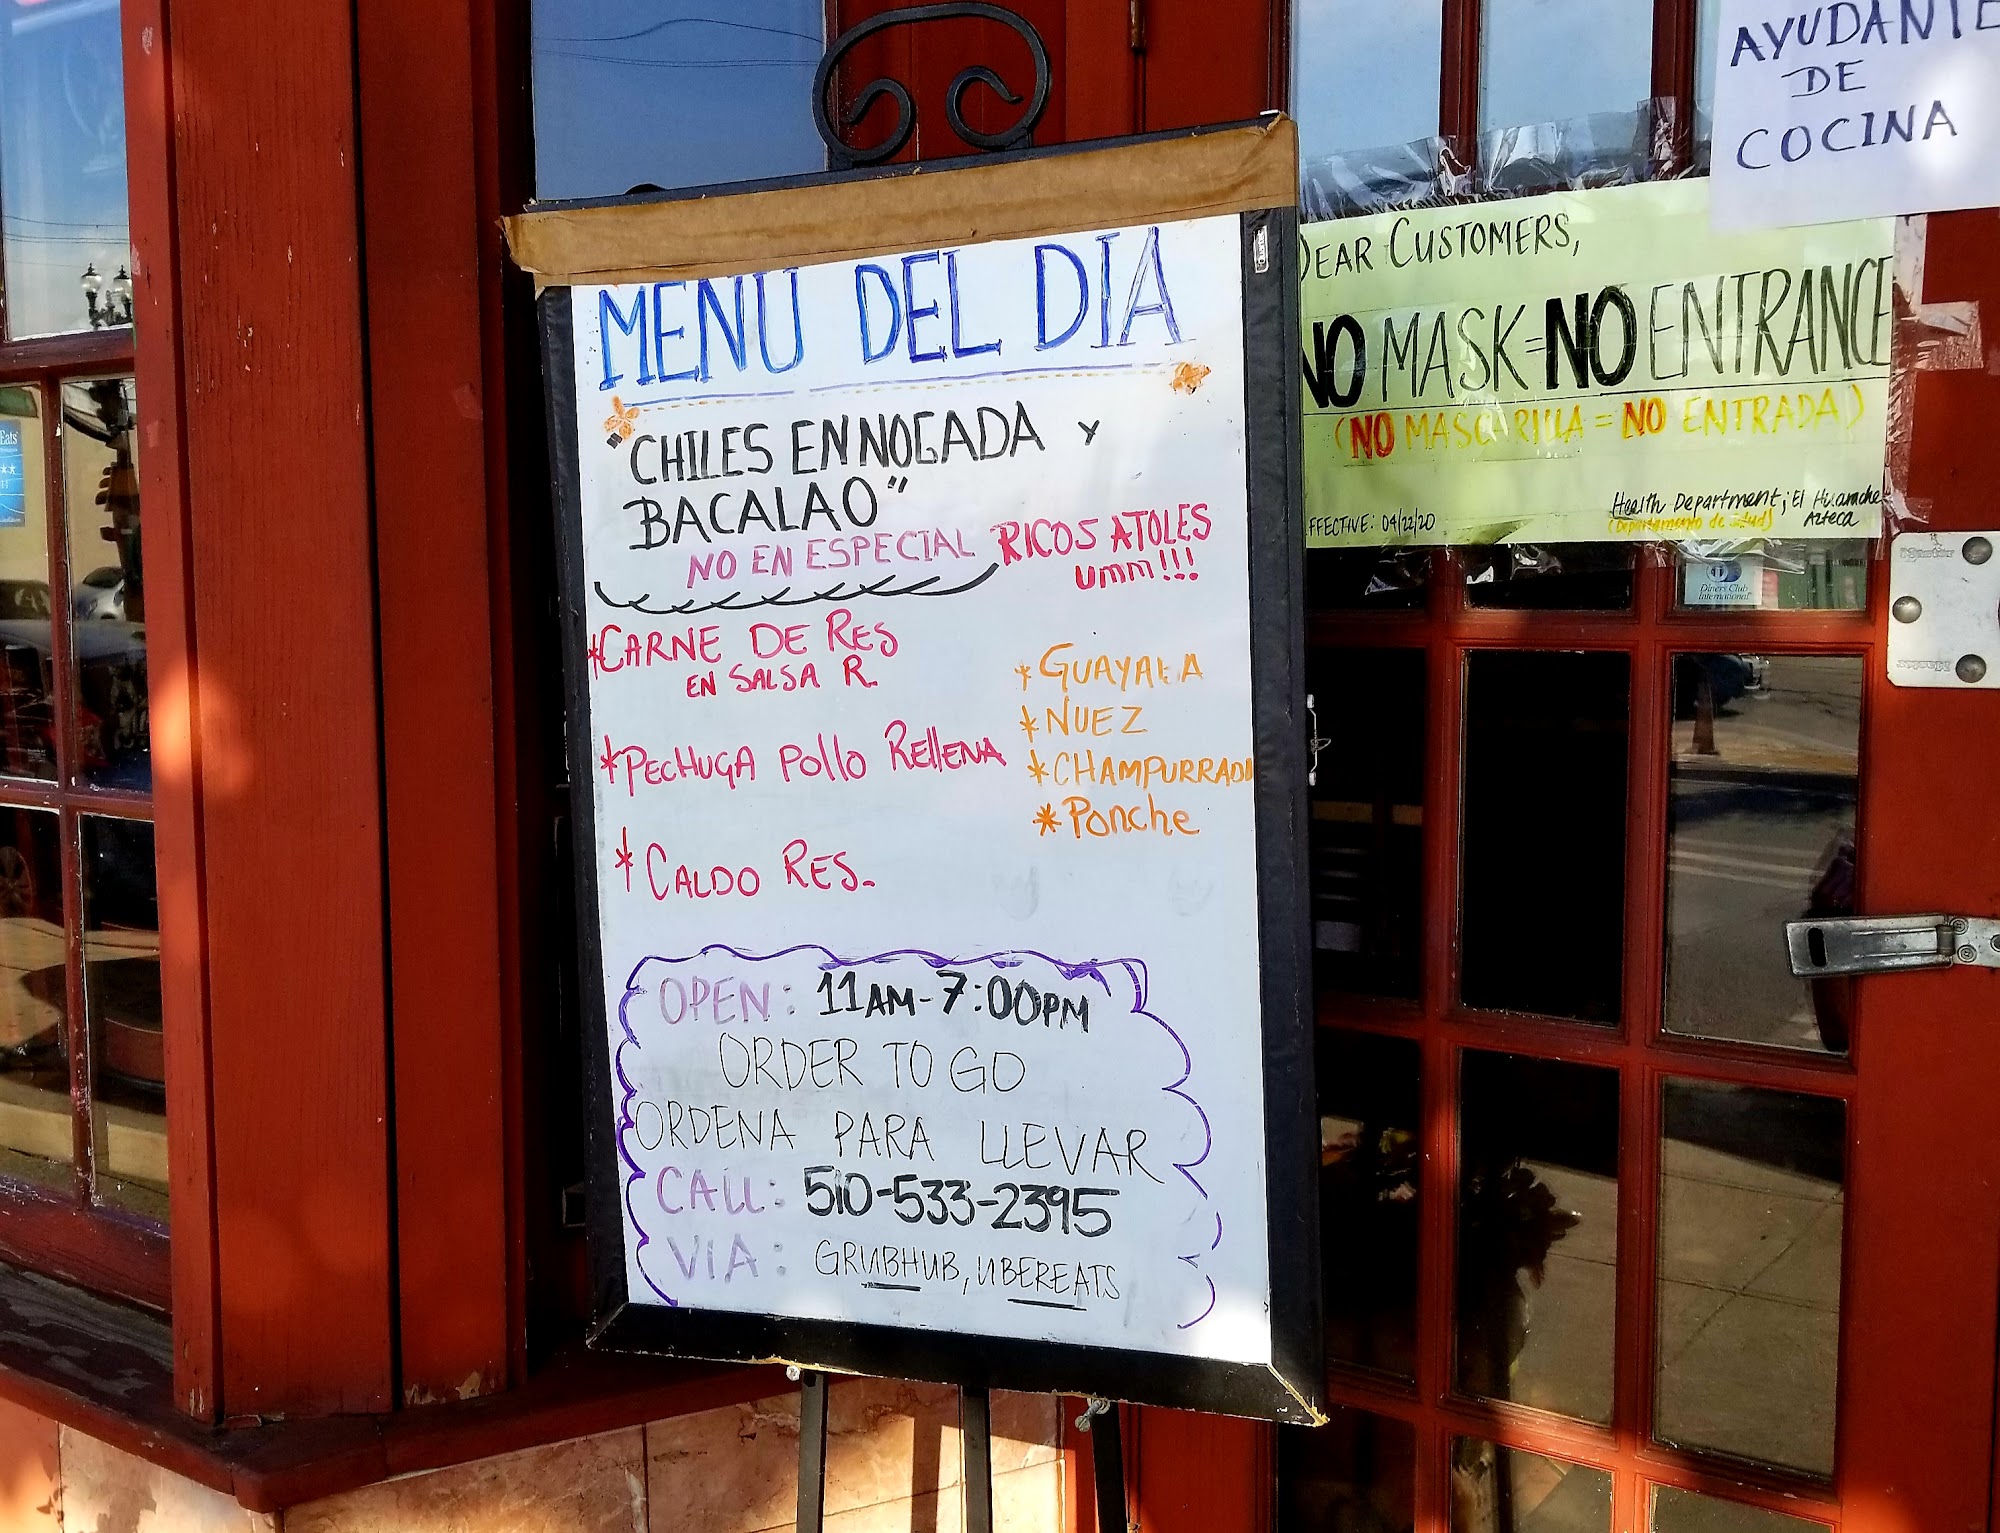 MENU DEL DIA
"CHILES EN NOGADA Y
BACALAO"
NO EN ESPECIAL
RICOS ATOLES
umm!!!
*CARNE DE RES
EN SALSA R.
*PECHUGA POLLO RELLENA
*CALDO RES.
*GUAYABA
*NUEZ
*CHAMPURRADO
*PONCHE
OPEN: 11AM-7:00PM
ORDER TO GO
ORDENA PARA LLEVAR
CALL: 510-533-2395
VIA: GRUBHUB, UBEREATS
AYUDANTE
DE
COCINA
DEAR CUSTOMERS,
NO MASK=NO ENTRANCE
(NO MASCARILLA = NO ENTRADA)
Health Department; El Huarache
(Departamento de Salud) Azteca
EFFECTIVE: 04/22/20
Diners Club
International
Eats